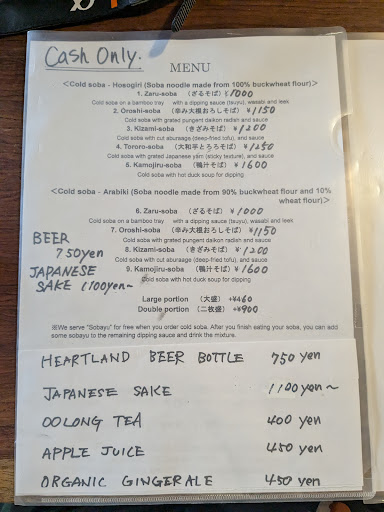 Cash Only.
MENU
<Cold soba - Hosogiri (Soba noodle made from 100% buckwheat flour)>
1. Zaru-soba (ざるそば) ¥1000
Cold soba on a bamboo tray with a dipping sauce (tsuyu), wasabi and leek
2. Oroshi-soba (辛み大根おろしそば) ¥1150
Cold soba with grated pungent daikon radish and sauce
3. Kizami-soba (きざみそば) ¥1200
Cold soba with cut aburaage (deep-fried tofu), and sauce
4. Tororo-soba (大和芋とろろそば) ¥1250
Cold soba with grated Japanese yam (sticky texture), and sauce
5. Kamojiru-soba (鴨汁そば) ¥1600
Cold soba with hot duck soup for dipping
<Cold soba - Arabiki (Soba noodle made from 90% buckwheat flour and 10% wheat flour)>
6. Zaru-soba (ざるそば) ¥1000
Cold soba on a bamboo tray with a dipping sauce (tsuyu), wasabi and leek
7. Oroshi-soba (辛み大根おろしそば) ¥1150
Cold soba with grated pungent daikon radish and sauce
8. Kizami-soba (きざみそば) ¥1200
Cold soba with cut aburaage (deep-fried tofu), and sauce
9. Kamojiru-soba (鴨汁そば) ¥1600
Cold soba with hot duck soup for dipping
BEER
750yen
JAPANESE
SAKE 1100yen~
Large portion (大盛) +¥460
Double portion (二枚盛) +¥900
※We serve "Sobayu" for free when you order cold soba. After you finish eating your soba, you can add
some sobayu to the remaining dipping sauce and drink the mixture.
HEARTLAND BEER BOTTLE 750 yen
JAPANESE SAKE 1100 yen~
OOLONG TEA 400 yen
APPLE JUICE 450 yen
ORGANIC GINGERALE 450 yen